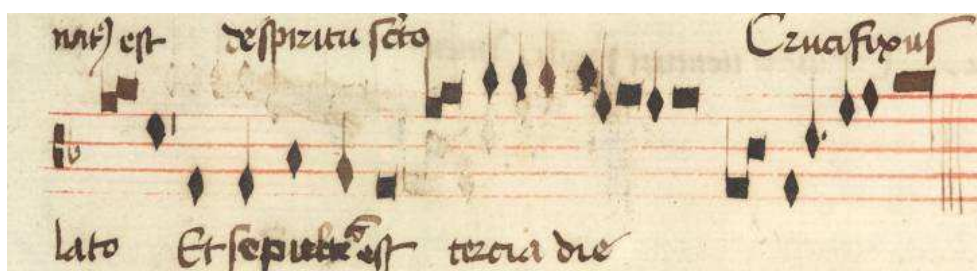 nat9 est de spiritu scto Crucifixus
lato Et sepult9 est tercia die